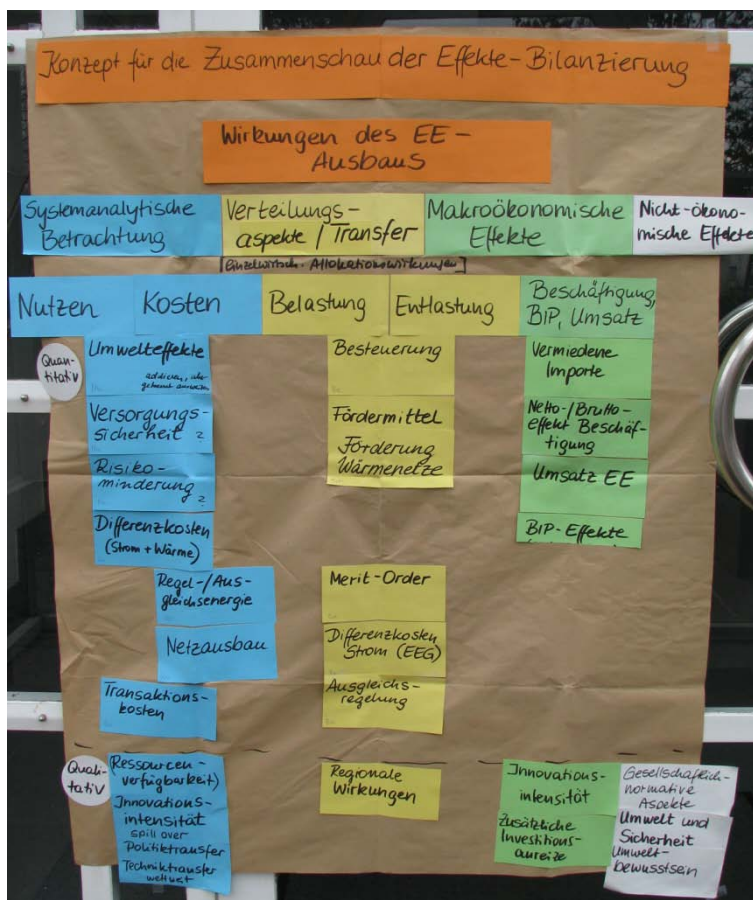 Konzept für die Zusammenschau der Effekte-Bilanzierung
Wirkungen des EE-
Ausbaus
Systemanalytische
Betrachtung
Verteilungs-
aspekte / Transfer
Makroökonomische
Effekte
Nicht-ökono-
mische Effekte
[Einzelwirtsch. Allokationswirkungen]
Nutzen
Kosten
Belastung
Entlastung
Beschäftigung,
BIP, Umsatz
Quan-
titativ
Umwelteffekte
addieren, aber
getrennt ausweisen
Versorgungs-
sicherheit ?
Risiko-
minderung
?
Differenzkosten
(Strom + Wärme)
Regel-/Aus-
gleichsenergie
Netzausbau
Transaktions-
kosten
Besteuerung
Fördermittel
Förderung
Wärmenetze
Merit-Order
Differenzkosten
Strom (EEG)
Ausgleichs-
regelung
Vermiedene
Importe
Netto-/Brutto-
effekt Beschäf-
tigung
Umsatz EE
BIP-Effekte
Quali-
tativ
(Ressourcen-
verfügbarkeit)
Innovations-
intensität
spill over
Politiktransfer
Techniktransfer
weltweit
Regionale
Wirkungen
Innovations-
intensität
Zusätzliche
Investitions-
anreize
Gesellschaftlich-
normative
Aspekte
Umwelt und
Sicherheit
Umwelt-
bewusstsein